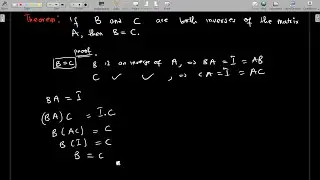 Theorem: If B and C are both inverses of the matrix
A, then B = C.
proof
B = C
B is an inverse of A, => BA = I = AB
C ✓ ✓, => CA = I = AC
BA = I
(BA)C = I.C
B(AC) = C
B(I) = C
B = C